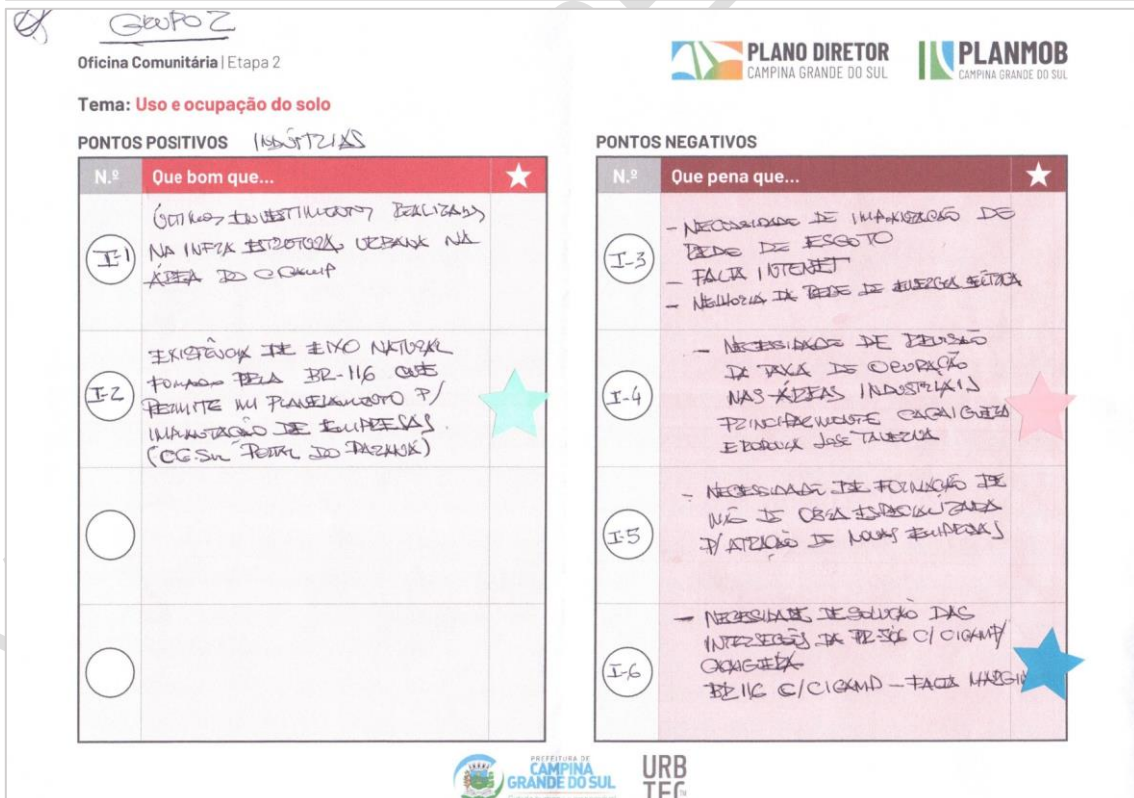 GRUPO 2
Oficina Comunitária | Etapa 2
PLANO DIRETOR
CAMPINA GRANDE DO SUL
PLANMOB
CAMPINA GRANDE DO SUL
Tema: Uso e ocupação do solo
PONTOS POSITIVOS INDÚSTRIAS
N.º Que bom que...
I-1
ÚLTIMOS INVESTIMENTOS REALIZADOS
NA INFRA ESTRUTURA URBANA NA
ÁREA DO
I-2
EXISTÊNCIA DE EIXO NATURAL
FORMADO PELA BR-116 QUE
PERMITE UM PLANEJAMENTO P/
IMPLANTAÇÃO DE EMPRESAS.
(CG.SUL PORTAL DO PARANÁ)
PONTOS NEGATIVOS
N.º Que pena que...
I-3
- NECESSIDADE DE IMPLANTAÇÃO DE
REDE DE ESGOTO
- FALTA INTERNET
- MELHORIA DA REDE DE ENERGIA ELÉTRICA
I-4
- NECESSIDADE DE REVISÃO
DA TAXA DE OCUPAÇÃO
NAS ÁREAS INDUSTRIAIS
PRINCIPALMENTE
E JOSÉ TAVERNA
I-5
- NECESSIDADE DE FORMAÇÃO DE
MÃO DE OBRA ESPECIALIZADA
P/ ATRAÇÃO DE NOVAS EMPRESAS
I-6
- NECESSIDADE DE SOLUÇÃO DAS
INTERSEÇÕES DA PR-506 C/ CIGAMP/
BR 116 C/ CIGAMP - FALTA MARGIN
PREFEITURA DE
CAMPINA
GRANDE DO SUL
URB
TEC